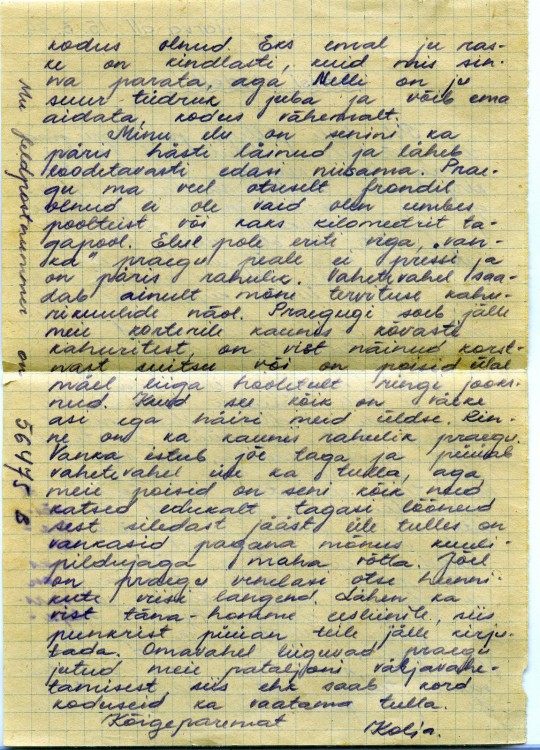 kodus olnud. Eks emal ju ras-
ke on kindlasti, kuid mis sin-
na parata, aga Nelli on ju
suur tüdruk juba ja võib ema
aidata, kodus vähemalt.
Minu elu on senini ka
päris hästi läinud ja läheb
loodetavasti edasi niisama. Prae-
gu ma veel otseselt frondil
olnud ei ole vaid olen umbes
poolteist või kaks kilomeetrit ta-
gapool. Elul pole eriti viga, „van-
ka" praegu peale ei pressi ja
on päris rahulik. Vahetevahel saa-
dab ainult mõne tervituse kahu-
rikuulide näol. Praegugi soeb jälle
meie korterile kaunis kõvasti
kahuritest, on vist näinud korst-
nast suitsu või on poisid ülal
mäel liiga hooletult ringi jooks-
nud. Kuid see kõik on väike
asi ega häiri meid üldse. Rin-
ne on ka kaunis rahulik praegu.
Vanka istub jõe taga ja püüab
vahetevahel üle ka tulla, aga
meie poisid on seni kõik need
katsed edukalt tagasi löönud
sest siledast jääst üle tulles on
vankasid pagana mõnus kuuli-
pildujaga maha võtta. Jõel
on praegu venelasi otse hunni-
kute viisi langend. Lähen ka
vist täna-homme eesliinile, siis
punkrist püüan teile jälle kirju-
tada. Omavahel liiguvad praegu
jutud meie pataljoni väljavahe-
tamisest siis ehk saab kord
koduseid ka vaatama tulla.
Kõigeparemat
Kolja.
Mu feldpostnummer on 56475 B